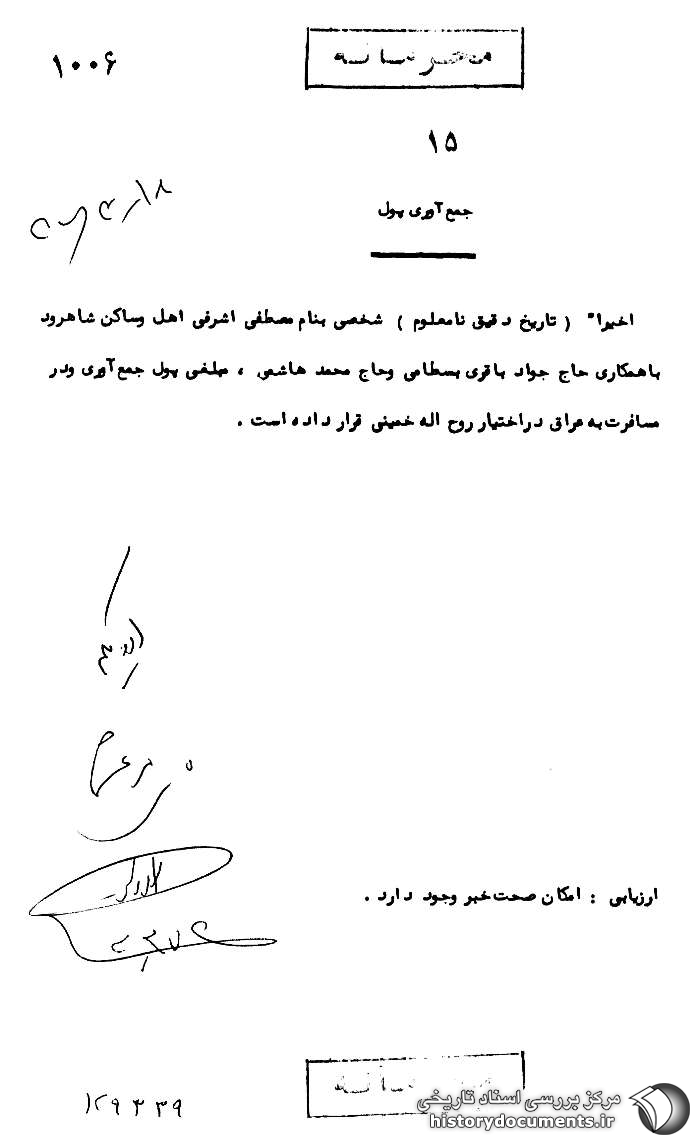 محرمانه
۱۰۰۶
۱۵
جمع آوری پول
اخیرا" ( تاریخ دقیق نامعلوم ) شخصی بنام مصطفی اشرفی اهل وساکن شاهرود
باهمکاری حاج جواد باقری بسطامی وحاج محمد هاشمی ، مبلغی پول جمع آوری ودر
مسافرت به عراق دراختیار روح اله خمینی قرار داده است .
ارزیابی : امکان صحت خبر وجود دارد .
محرمانه
۱۲۹۳۳۹
مرکز بررسی اسناد تاریخی
historydocuments.ir